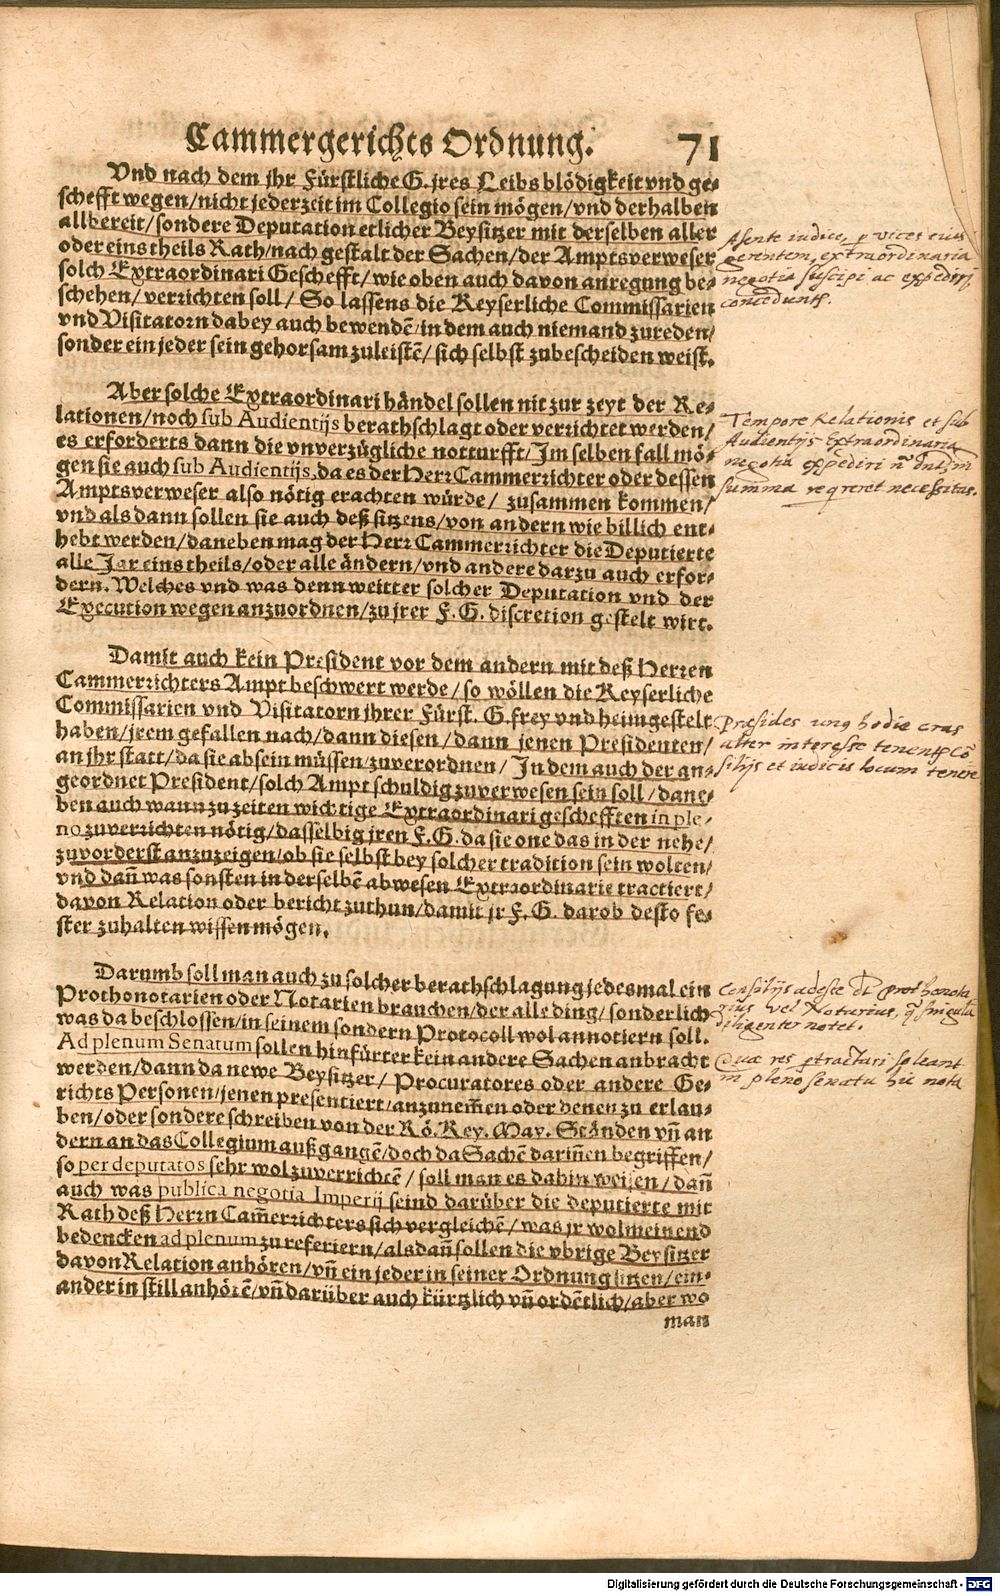 Cammergerichts Ordnung. 71
Vnd nach dem jhr Fürstliche G. jres Leibs blödigkeit vnd ge-
schefft wegen/nicht jederzeit im Collegio sein mögen/vnd derhalben
allbereit/sondere Deputation etlicher Beysitzer mit derselben aller
oder eins theils Rath/nach gestalt der Sachen/der Amptsverweser
solch Extraordinari Geschefft/wie oben auch davon anregung be-
schehen/verrichten soll/ So lassens die Keyserliche Commissarien
vnd Visitatorn dabey auch bewendē/in dem auch niemand zureden/
sonder ein jeder sein gehorsam zuleistē/sich selbst zubescheiden weist.
Absente iudice, vices eius
gerentem, extraordinaria
negotia suscipi ac expediri
concedunt.
Aber solche Extraordinari händel sollen nit zur zeyt der Re-
lationen/noch sub Audientijs berathschlagt oder verrichtet werden/
es erforderts dann die vnverzügliche notturfft/Im selben fall mö-
gen sie auch sub Audientijs, da es der Herr Cammerrichter oder dessen
Amptsverweser also nötig erachten würde/ zusammen kommen/
vnd als dann sollen sie auch deß sitzens/von andern wie billich ent-
hebt werden/daneben mag der Herr Cammerrichter die Deputierte
alle Jar eins theils/oder alle ändern/vnd andere darzu auch erfor-
dern. Welches vnd was denn weitter solcher Deputation vnd der
Execution wegen anzuordnen/zu jrer F. G. discretion gestelt wirt.
Tempore Relationis et sub
Audientijs Extraordinaria
negotia expediri
summa necessitas.
Damit auch kein President vor dem andern mit deß Herren
Cammerrichters Ampt beschwert werde/so wöllen die Keyserliche
Commissarien vnd Visitatorn jhrer Fürst. G. frey vnd heimgestelt
haben/jrem gefallen nach/dann diesen/dann jenen Presidenten/
an jhr statt/da sie absein müssen/zuverordnen/ In dem auch der an-
geordnet President/solch Ampt schuldig zuverwesen sein soll/dane-
ben auch wann zu zeiten wichtige Extraordinari geschefften in ple-
no zuverrichten nötig/dasselbig jren F. G. da sie one das in der nehe/
zuvorderst anzuzeigen/ob sie selbst bey solcher tradition sein wolten/
vnd dañ was sonsten in derselbē abwesen Extraordinarie tractiert/
davon Relation oder bericht zuthun/damit jr F. G. darob desto fe-
ster zuhalten wissen mögen.
Præsides hodie cras
alter interesse
et iudicis locum tenere
Darumb soll man auch zu solcher berathschlagung jedesmal ein
Prothonotarien oder Notarien brauchen/der alle ding/sonderlich
was da beschlossen/in seinem sondern Protocoll wol annotiern soll.
Ad plenum Senatum sollen hinfürter kein andere Sachen anbracht
werden/dann da newe Beysitzer/ Procuratores oder andere Ge-
richts Personen/jenen presentiert/anzunem̄en oder denen zu erlau-
ben/oder sondere schreiben von der Rö. Key. May. Ständen vñ an
dern an das Collegium außgangē/doch da Sachē darīnen begriffen/
so per deputatos sehr wol zuverrichtē/ soll man es dahin weisen/dañ
auch was publica negotia Imperij seind darüber die deputierte mit
Rath deß Herrn Cam̄errichters sich vergleichē/was jr wolmeinend
bedencken ad plenum zu referiern/als dañ sollen die vbrige Beysitzer
davon Relation anhören/vñ ein jeder in seiner Ordnung sitzen/ein-
ander in still anhörē/vñ darüber auch kürtzlich vñ ordētlich/aber wo
man
Consilijs adesse
vel Notarius,
diligenter notet.
Quæ res soleant
in pleno senatu hic nota
Digitalisierung gefördert durch die Deutsche Forschungsgemeinschaft - DFG